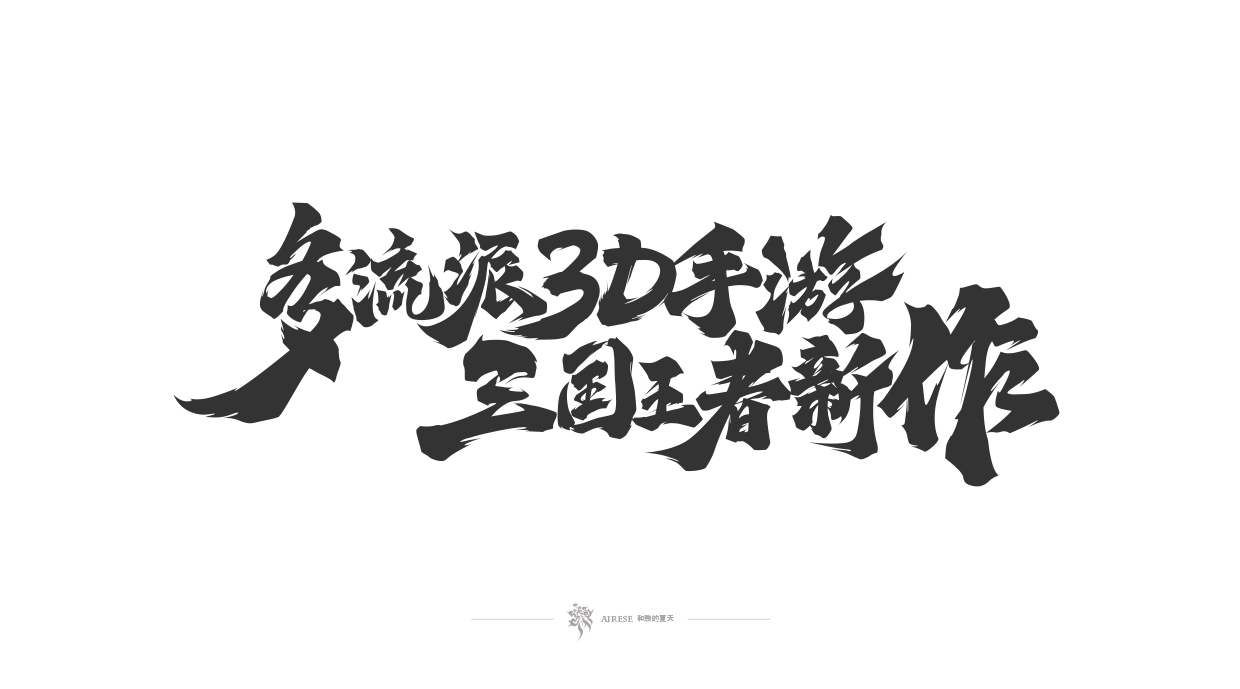 多流派3D手游
三国王者新作
AIRESE 和煦的夏天